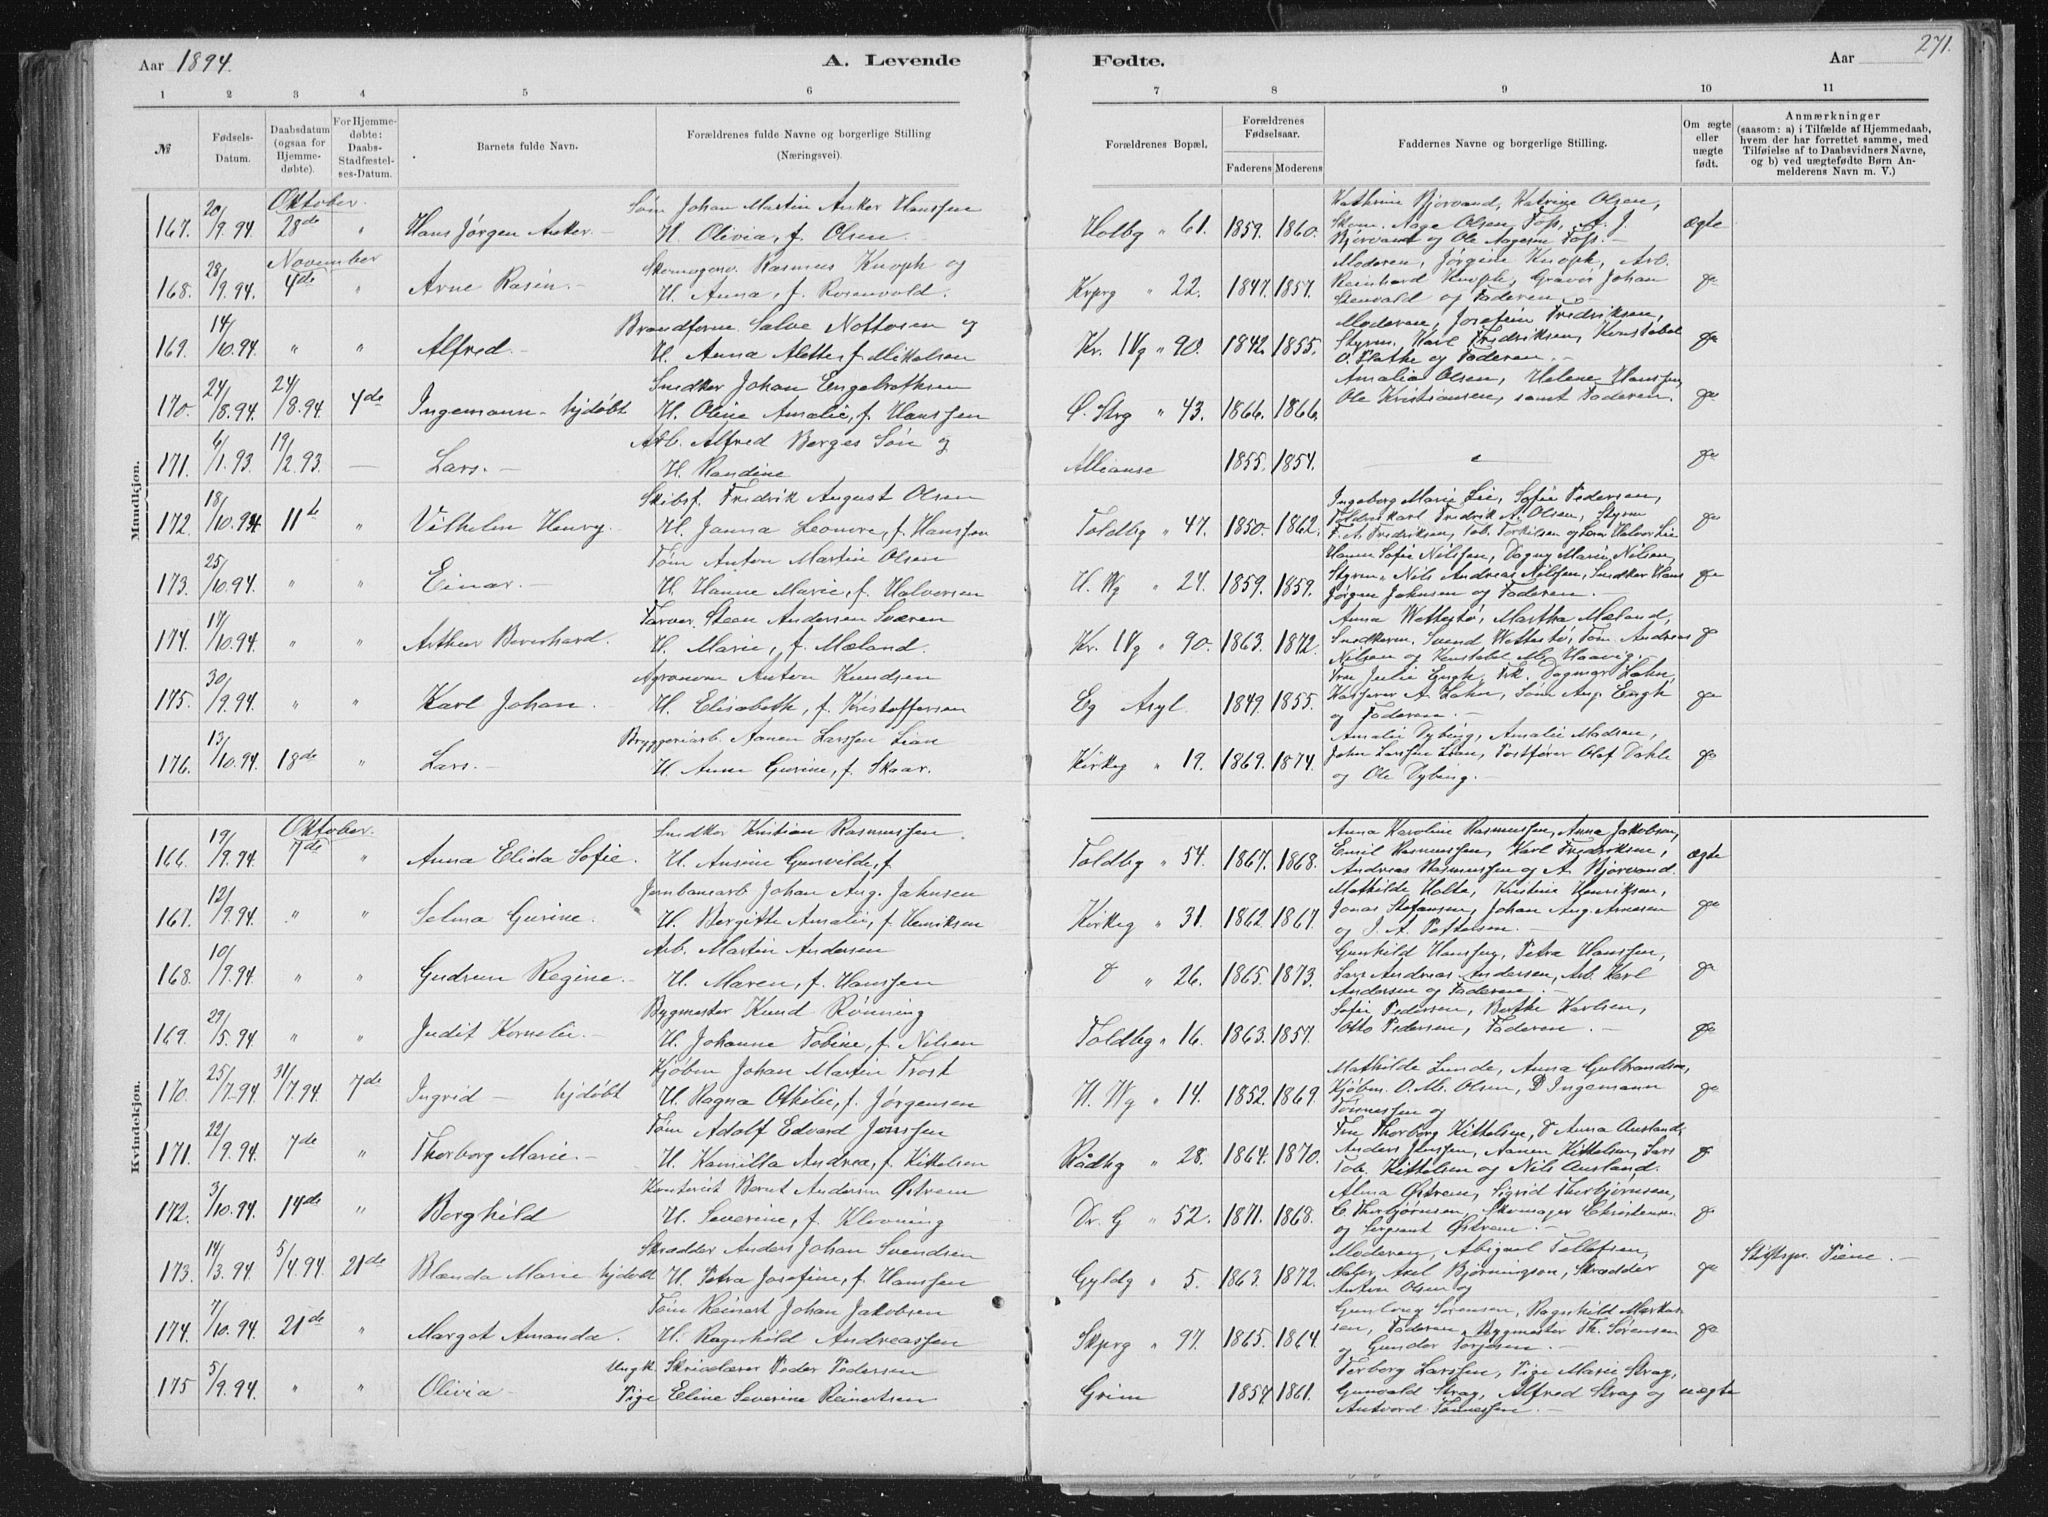 Aar 1894.
A. Levende
Fødte.
Aar
271.
1 2 3 4 5 6 7 8 9 10 11
№
Fødsels-Datum.
Daabsdatum (ogsaa for Hjemmedøbte).
For Hjemmedøbte: Daabs-Stadfæstelses-Datum.
Barnets fulde Navn.
Forældrenes fulde Navne og borgerlige Stilling (Næringsvei).
Forældrenes Bopæl.
Forældrenes Fødselsaar.
Faderens Moderens
Faddernes Navne og borgerlige Stilling.
Om ægte eller uægte født.
Anmærkninger
(saasom: a) i Tilfælde af Hjemmedaab, hvem der har forrettet samme, med Tilføielse af to Daabsvidners Navne, og b) ved uægtefødte Børn Anmelderens Navn m. V.)
Mandkjøn.
Oktober.
167. 20/9.94. 28de " Hans Jørgen Anker. Tøm Johan Martin Anker Hanssen
H. Olivia, f. Olsen
Holbg " 61. 1859. 1860. Kathrine Bjorvand, Katrine Olsen,
Skom. Aage Olsen Foss, A. J.
Bjorvand og Ole Aagesen Foss. ægte
November
168. 28/9.94. 4de " Arne Rosin. Skomagersv. Rasmus Knoph og
H. Anna, f. Rosenvold.
Krprg " 22. 1847. 1857. Moderen, Jørgine Knoph, Arb.
Reinhard Knoph, Gravør Johan
Stenvald og Faderen
169. 14/10.94. " " Alfred. Brandform. Salve Nottosen og
H. Anna Alette, f. Mikalsen
Kr. IVg " 90. 1842. 1855. Moderen, Josefine Fredriksen,
Styrm. Karl Fredriksen, Konstabel
O. Flathe og Faderen.
170. 24/8.94. 24/8.94. 4de Ingemann - hjdøbt Snedker Johan Engebrethsen
H. Oline Amalie, f. Hanssen
Ø. Strg " 43. 1866. 1866. Amalia Olsen, Helene Hanssen,
Ole Kristiansen, samt Faderen.
171. 6/1.93. 19/2.93. — Lars. Arb. Alfred Borges Søn og
H. Randine
Allianse 1855. 1854.
172. 18/10.94 11te " Vilhelm Henry. Skibsf. Fredrik August Olsen
H. Janna Leonore, f. Hanssen
Toldbg " 47. 1850. 1862. Ingeborg Marie Lie, Sofie Pedersen,
Toldviskarl Fredrik A. Olsen, Styrm
F. A. Fredriksen, Tob. Torkilsen og Tøm Halvor Lie
173. 25/10.94. " " Einar. Tøm Anton Martin Olsen
H. Hanne Marie, f. Halvorsen
H. Wg " 24. 1859. 1859. Hanne Sofie Nilssen, Dagny Marie Nilsen,
Styrm. Nils Andreas Nilsen, Snedker Hans
Jørgen Johnsen og Faderen.
174. 17/10.94. " " Arthur Bernhard. Farver Steen Andersen Sværen
H. Marie, f. Mæland.
Kr. IVg " 90. 1863. 1872. Anna Wettestø, Martha Mæland,
Snedkerm. Svend Wettestø, Tøm. Andreas
Nilsen og Konstabel M. Haavig.
175. 30/9.94. " " Karl Johan. Agronom Anton Knudsen
H. Elisabeth, f. Kristoffersen
Eg Asyl. 1849. 1855. Fru Julie Engh, Frk. Dagmar Lahn,
Kasserer A. Lahn, Tøm Aug. Engh
og Faderen.
176. 13/10.94. 18de " Lars. Bryggeriarb. Aanen Larssen Lian
H. Anne Gurine, f. Skaar.
Kirkeg " 19. 1869. 1874. Amalie Dybing, Amalie Madsen,
John Larssen Lian, Postfører Olaf Dahle
og Ole Dybing.
Kvindekjøn.
Oktober.
166. 19/9.94. 7de " Anna Elida Sofie. Snedker Kristian Rasmussen.
H. Ansine Gunvilde, f.
Toldbg " 54. 1867. 1868. Anna Karoline Rasmussen, Anna Jakobsen,
Emil Rasmussen, Karl Fredriksen,
Andreas Rasmussen og A. Bjorvand. ægte
167. 12/9.94. " " Selma Gurine. Jernbanearb Johan Aug. Jahnsen
H. Bergitte Amalie, f. Henriksen
Kirkeg " 31. 1862. 1867. Mathilde Holte, Kristine Henriksen,
Jonas Stefansen, Johan Aug. Arnesen
og J. A. Pettersen.
168. 10/9.94. " " Gudrun Regine. Arb. Martin Andersen
H. Maren, f. Hanssen
" 26. 1865. 1873. Gunhild Hanssen, Petra Hanssen,
Lars Andreas Andersen, Arb. Karl
Andersen og Faderen.
169. 29/5.94. " " Judit Kornelie. Bygmester Knud Rønning
H. Johanne Tobine, f. Nilsen
Toldbg " 16. 1863. 1857. Sofie Pedersen, Berthe Karlsen,
Otto Pedersen, Faderen.
170. 25/7.94 31/7.94 7de Ingrid - hjdøbt Kjøbm Johan Martin Trost
H. Ragna Othilie, f. Jørgensen
H. Wg " 14. 1852. 1869. Mathilde Lunde, Anna Gulbrandsen,
Kjøbm. O. M. Olsen, D Ingemann
Tønnessen og
171. 22/9.94. 7de " Thorborg Marie. Tøm Adolf Edvard Jenssen
H. Kamilla Andrea, f. Kittelsen
Rådhg " 28. 1864. 1870. Fru Thorborg Kittelsen, d° Anna Ausland,
Anders Jenssen, Aanen Kittelsen, Lars
Tob. Kittelsen og Nils Ausland.
172. 3/10.94. 14de " Borghild Kontorist Bernt Andersen Østrem
H. Severine, f. Klovning
Dr. G " 52. 1871. 1868. Alma Østrem, Sigrid Thorbjørnsen,
C. Thorbjørnsen, Skomager Christensen
og Sergeant Østrem.
173. 14/3.94. 5/4.94. 21de Blænda Marie hjdøbt Skrædder Anders Johan Svendsen
H. Petra Josefine, f. Hanssen
Gyldg " 5. 1863. 1872. Moderen, Abigael Tellefsen,
Maler Axel Bjørningson, Skrædder
Anton Olsen og
Stiftspr. Piene.
174. 7/10.94. 21de " Margot Amanda. Tøm Reinert Johan Jakobsen
H. Ragnhild Andreassen
Skprg " 97. 1865. 1864. Gunborg Sørensen, Ragnhild Markussen,
Faderen, Bygmester Th. Sørensen
og Gunder Torjesen.
175 5/9.94. " " Olivia Ungk. Skrædderer Peder Pedersen
Pige Eline Severine Reinertsen
Grim 1854. 1861. Terborg Larssen, Pige Marie Strag,
Gunvald Strag, Alfred Strag og
Antvord Tønnessen. uægte